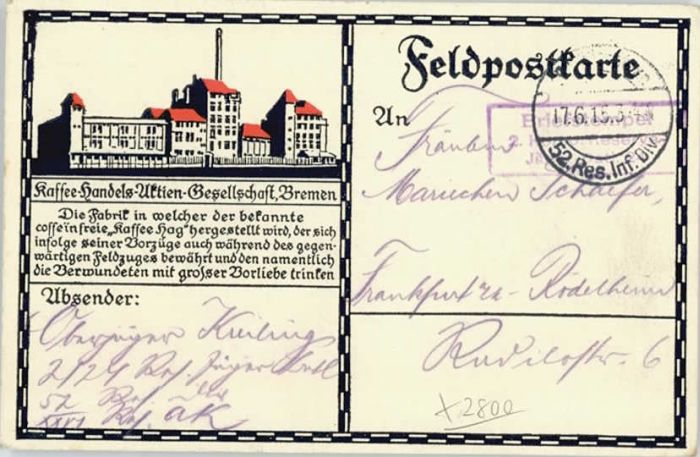 Feldpostkarte
An
Fräulein
Mariechen Schaefer,
Frankfurt a/M-Rödelheim
Radilostr. 6
17.6.15.
52.Res.Inf.Div.
Briefstempel
Kaffee-Handels-Aktien-Gesellschaft, Bremen
Die Fabrik in welcher der bekannte
coffeïnfreie „Kaffee Hag" hergestellt wird, der sich
infolge seiner Vorzüge auch während des gegen-
wärtigen Feldzuges bewährt und den namentlich
die Verwundeten mit großer Vorliebe trinken
Absender:
Oberjäger Kreiling
2/24 Res. Jäger Batl
52 Res. Div
XXVI Res. AK
x 2800